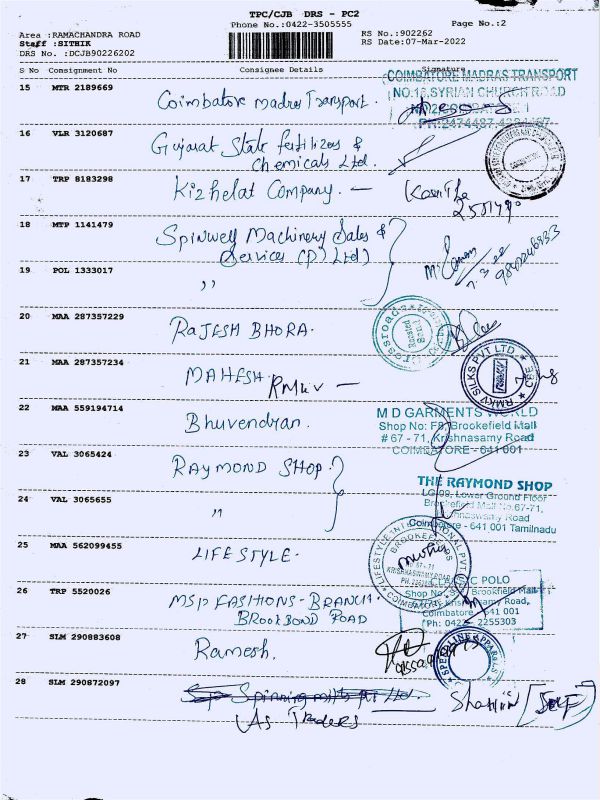 TPC/CJB DRS - PC2
Phone No.:0422-3505555
Page No.:2
Area :RAMACHANDRA ROAD
Staff :SITHIK
DRS No. :DCJB90226202
RS No.:902262
RS Date:07-Mar-2022
S No Consignment No Consignee Details Signature
15 MTR 2189669 Coimbatore Madras Transport.
COIMBATORE MADRAS TRANSPORT
NO.18, SYRIAN CHURCH ROAD
16 VLR 3120687 Gujarat State Fertilizers &
Chemicals Ltd.
17 TRP 8183298 Kizhelat Company. —
18 MTP 1141479 Spinwell Machinery Sales &
Services (P) Ltd)
19 POL 1333017 "
20 MAA 287357229 RAJESH BHORA.
21 MAA 287357234 MAHESH. RMKV —
RMKV SILKS PVT LTD. CBE
22 MAA 559194714 Bhuvendran.
M D GARMENTS WORLD
Shop No: F8, Brookefield Mall
# 67 - 71, Krishnasamy Road
COIMBATORE - 641 001
23 VAL 3065424 RAYMOND SHOP.
THE RAYMOND SHOP
LG 09, Lower Ground Floor
Brookefield Mall No.67-71,
Krishnaswamy Road
Coimbatore - 641 001 Tamilnadu
24 VAL 3065655 "
25 MAA 562099455 LIFESTYLE.
LIFESTYLE INTERNATIONAL PVT.
BROOKEFIELDS
67 - 71
KRISHNASAMY ROAD
COIMBATORE
26 TRP 5520026 MSP FASHIONS - BRANCH.
BROOKBOND ROAD
CLASSIC POLO
Brookefield Mall
Coimbatore - 641 001
Ph: 0422 - 2255303
27 SLM 290883608 Ramesh.
SPEEDLINE APPAREL
28 SLM 290872097 Spinning mills pvt Ltd.
VAS Traders